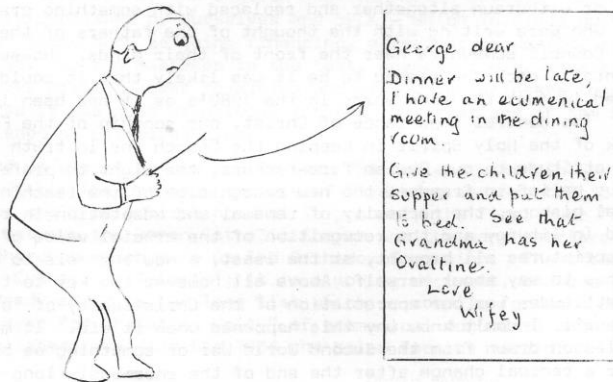 George dear
Dinner will be late,
I have an ecumenical
meeting in the dining
room.
Give the children their
supper and put them
to bed. See that
Grandma has her
Ovaltine.
Love
Wifey